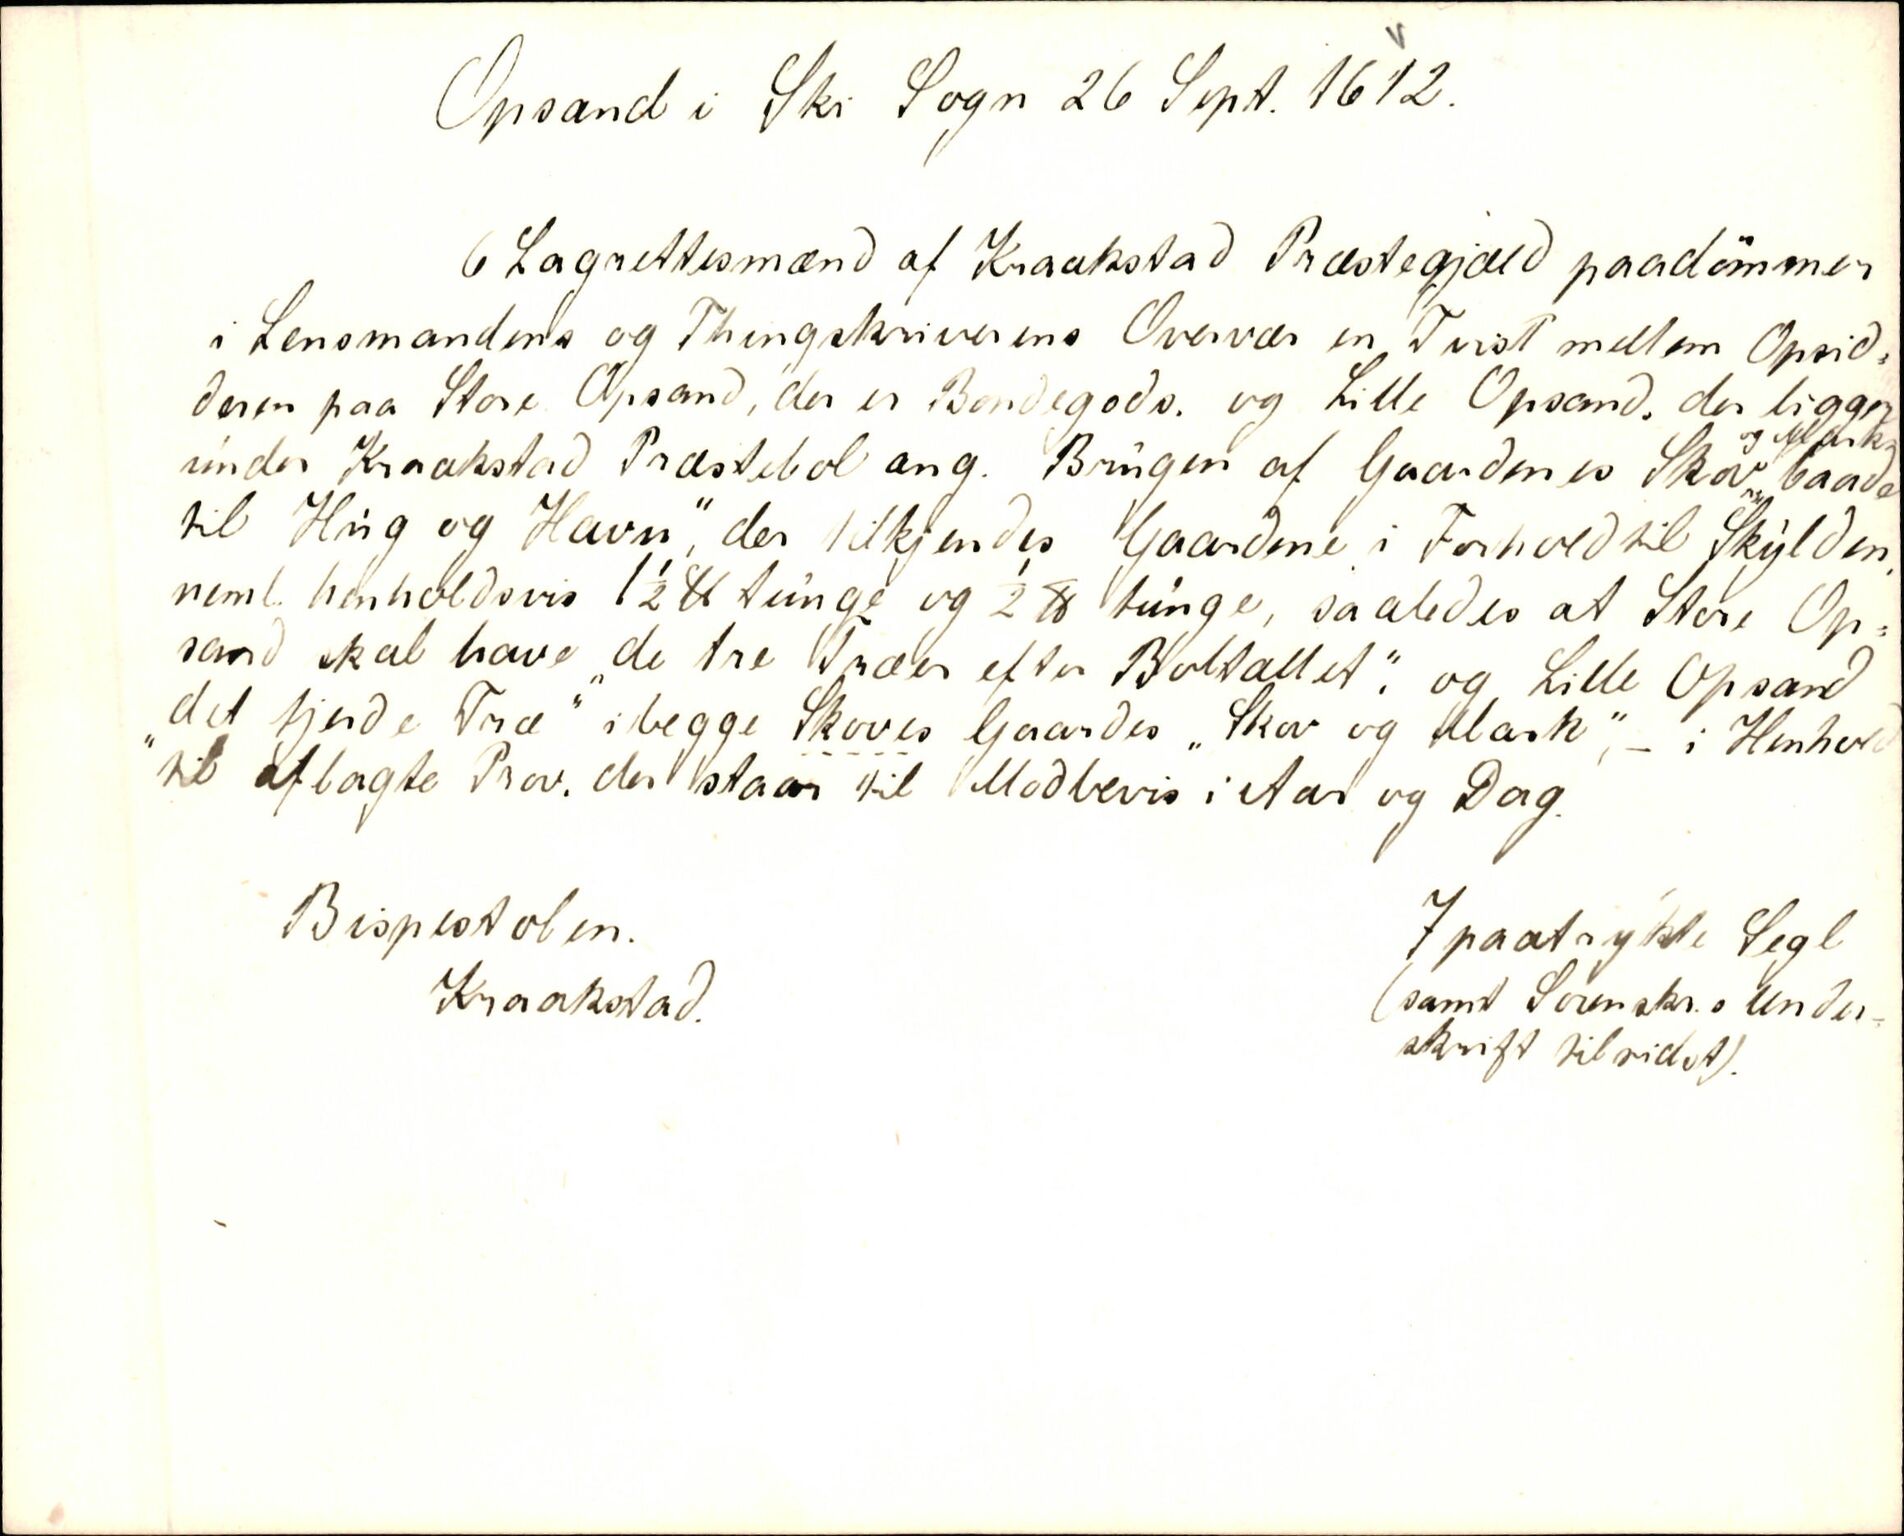 Opsand i Ski Sogn 26 Sept. 1612.
6 Lagrettesmænd af Kraakstad Præstegjæld paadömmer
i Lensmandens og Thingskriverens Overvær en Tvist mellem Opsid=
deren paa Store Opsand, der er Bondegods. og Lille Opsand. der ligger
under Kraakstad Præstebol ang. Brugen af Gaardenes Skov og Mark, "baade
til Hug og Havn", der tilkjendes Gaardene i Forhold til Skylden,
neml. henholdsvis 1½ ℔ tunge og ½ ℔ tunge, saaledes at Store Op=
sand skal have "de tre Træer efter Boltallet". og Lille Opsand
"det fjerde Træ" i begge Skoves Gaardes "Skov og Mark", – i Henhold
til aflagte Prov. der staar til Modbevis i Aar og Dag.
Bispestolen.
Kraakstad.
7 paatrykte Segl
(samt Sorenskr.s Under=
skrift tilsidst).